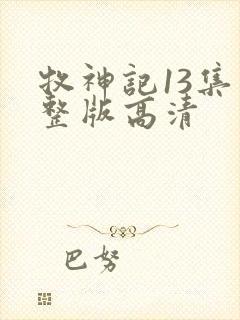 牧神記13集
整版高清
巴努